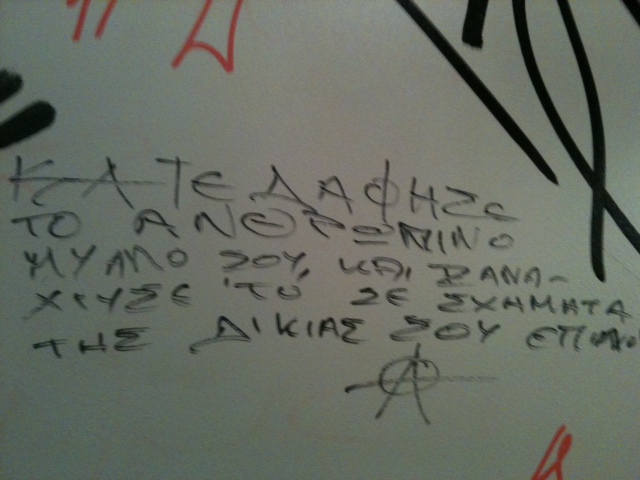 ΚΑΤΕΔΑΦΗΣΕ
ΤΟ ΑΝΘΡΩΠΙΝΟ
ΜΥΑΛΟ ΣΟΥ, ΚΑΙ ΞΑΝΑ-
ΧΤΥΣΕ ΤΟ ΣΕ ΣΧΗΜΑΤΑ
ΤΗΣ ΔΙΚΙΑΣ ΣΟΥ